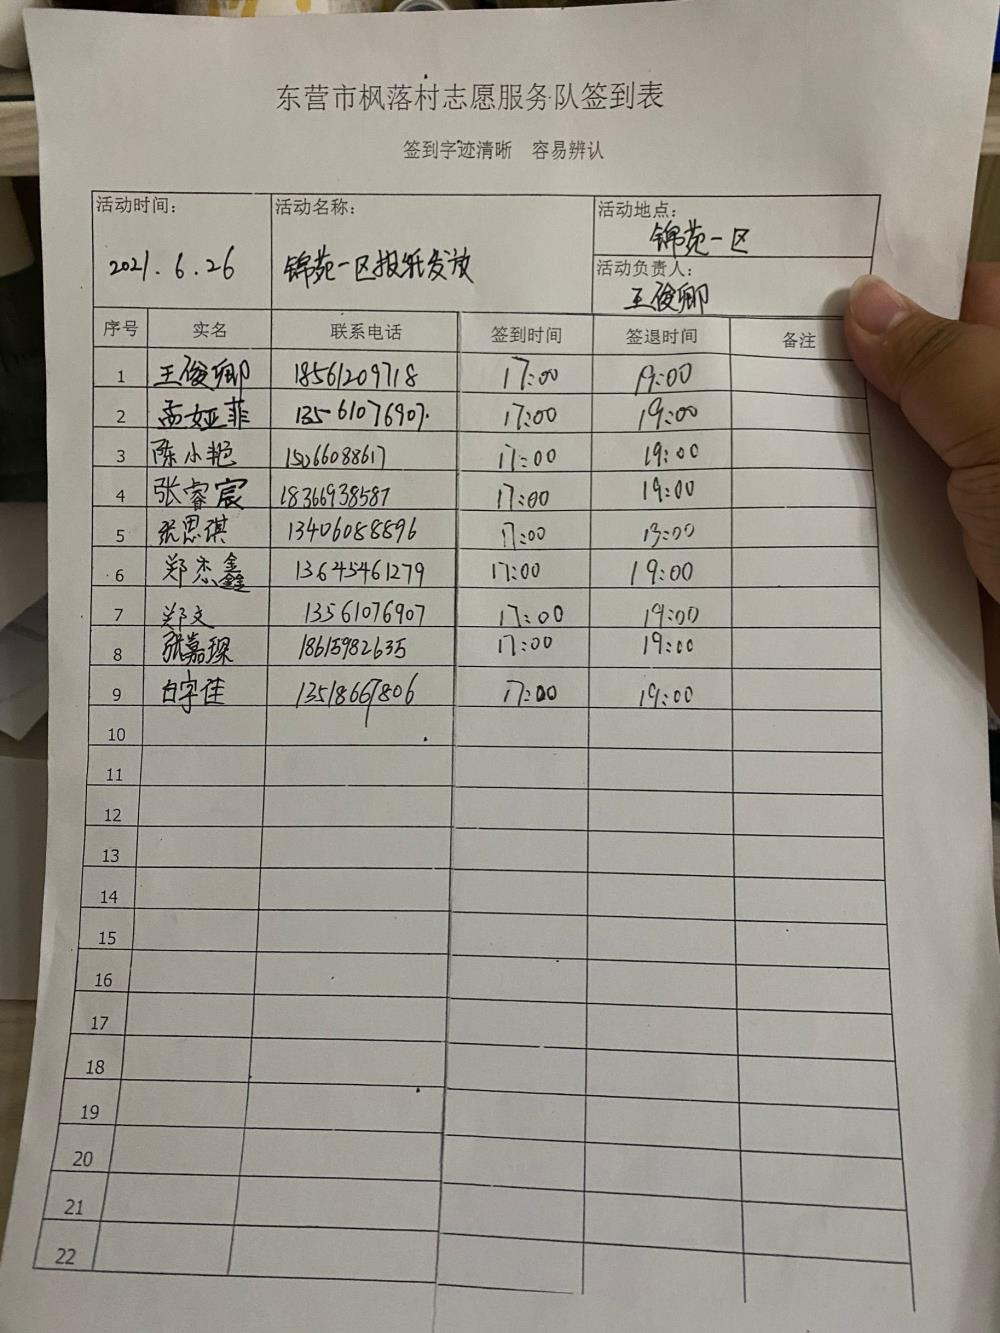 东营市枫落村志愿服务队签到表
签到字迹清晰　容易辨认
活动时间： 活动名称： 活动地点：
锦苑一区
2021.6.26 锦苑一区报纸发放
活动负责人：
王俊卿
序号 实名 联系电话 签到时间 签退时间 备注
1 王俊卿 18561209718 17:00 19:00
2 孟娅菲 13561076907 17:00 19:00
3 陈小艳 15066088617 17:00 19:00
4 张睿宸 18366938587 17:00 19:00
5 张思琪 13406088896 17:00 19:00
6 郑杰鑫 13645461279 17:00 19:00
7 郑文 13561076907 17:00 19:00
8 张嘉琛 18615982635 17:00 19:00
9 白宇佳 13518667806 17:00 19:00
10
11
12
13
14
15
16
17
18
19
20
21
22